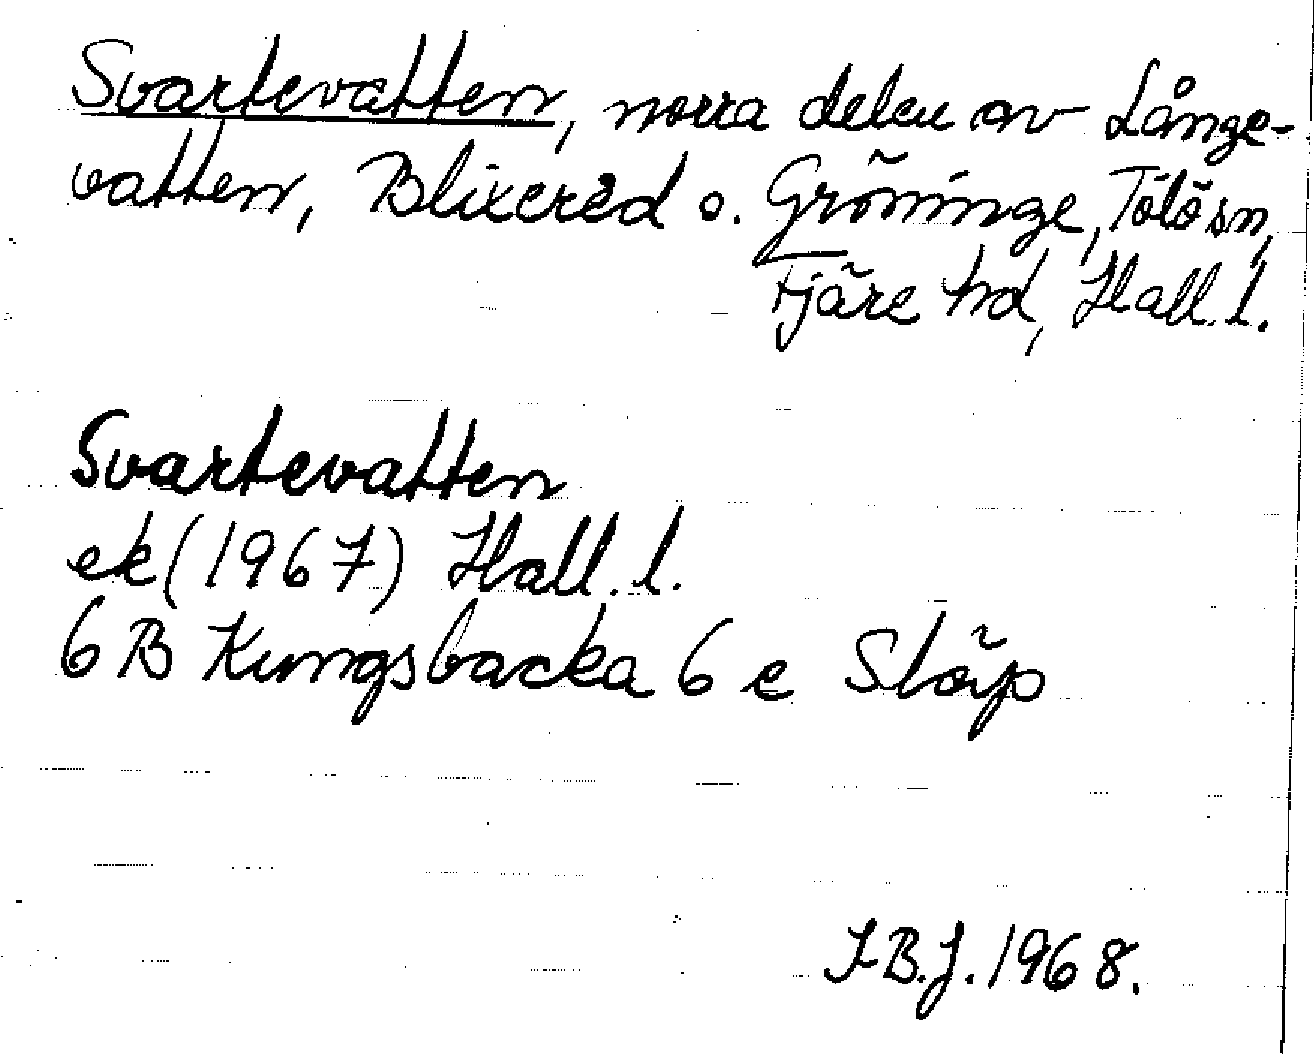 Svartevatten, norra delen av Långe-
vatten, Blixered o. Gröninge, Tölö sn,
Fjäre hd, Hall. l.
Svartevatten
ek (1967) Hall. l.
6 B Kungsbacka 6 e Släp
I.B.J. 1968.